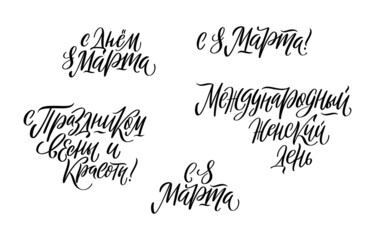 с Днём
8 Марта
с 8 Марта!
с Праздником
весны и
Красоты!
Международный
Женский
День
с 8
Марта